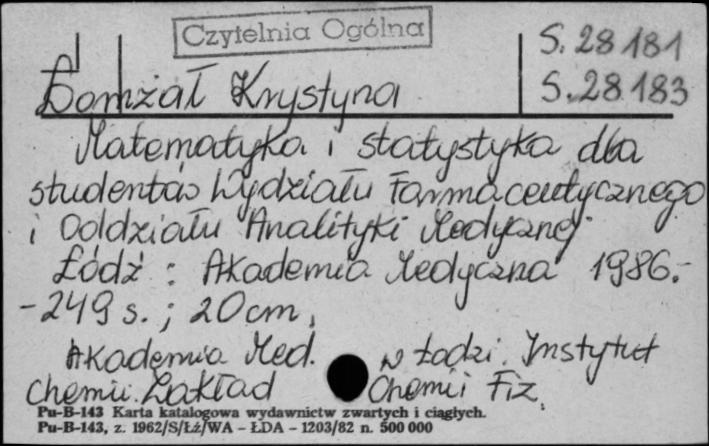 Czytelnia Ogólna
S. 28181
S. 28183
Domżał Krystyna
Matematyka i statystyka dla
studentów Wydziału Farmaceutycznego
i Oddziału Analityki Medycznej
Łódź : Akademia Medyczna 1986.-
-249 s. ; 20 cm.
Akademia Med. w Łodzi. Instytut
Chemii. Zakład Chemii Fiz.
Pu-B-143 Karta katalogowa wydawnictw zwartych i ciągłych.
Pu-B-143, z. 1962/S/Łż/WA – ŁDA – 1203/82 n. 500 000